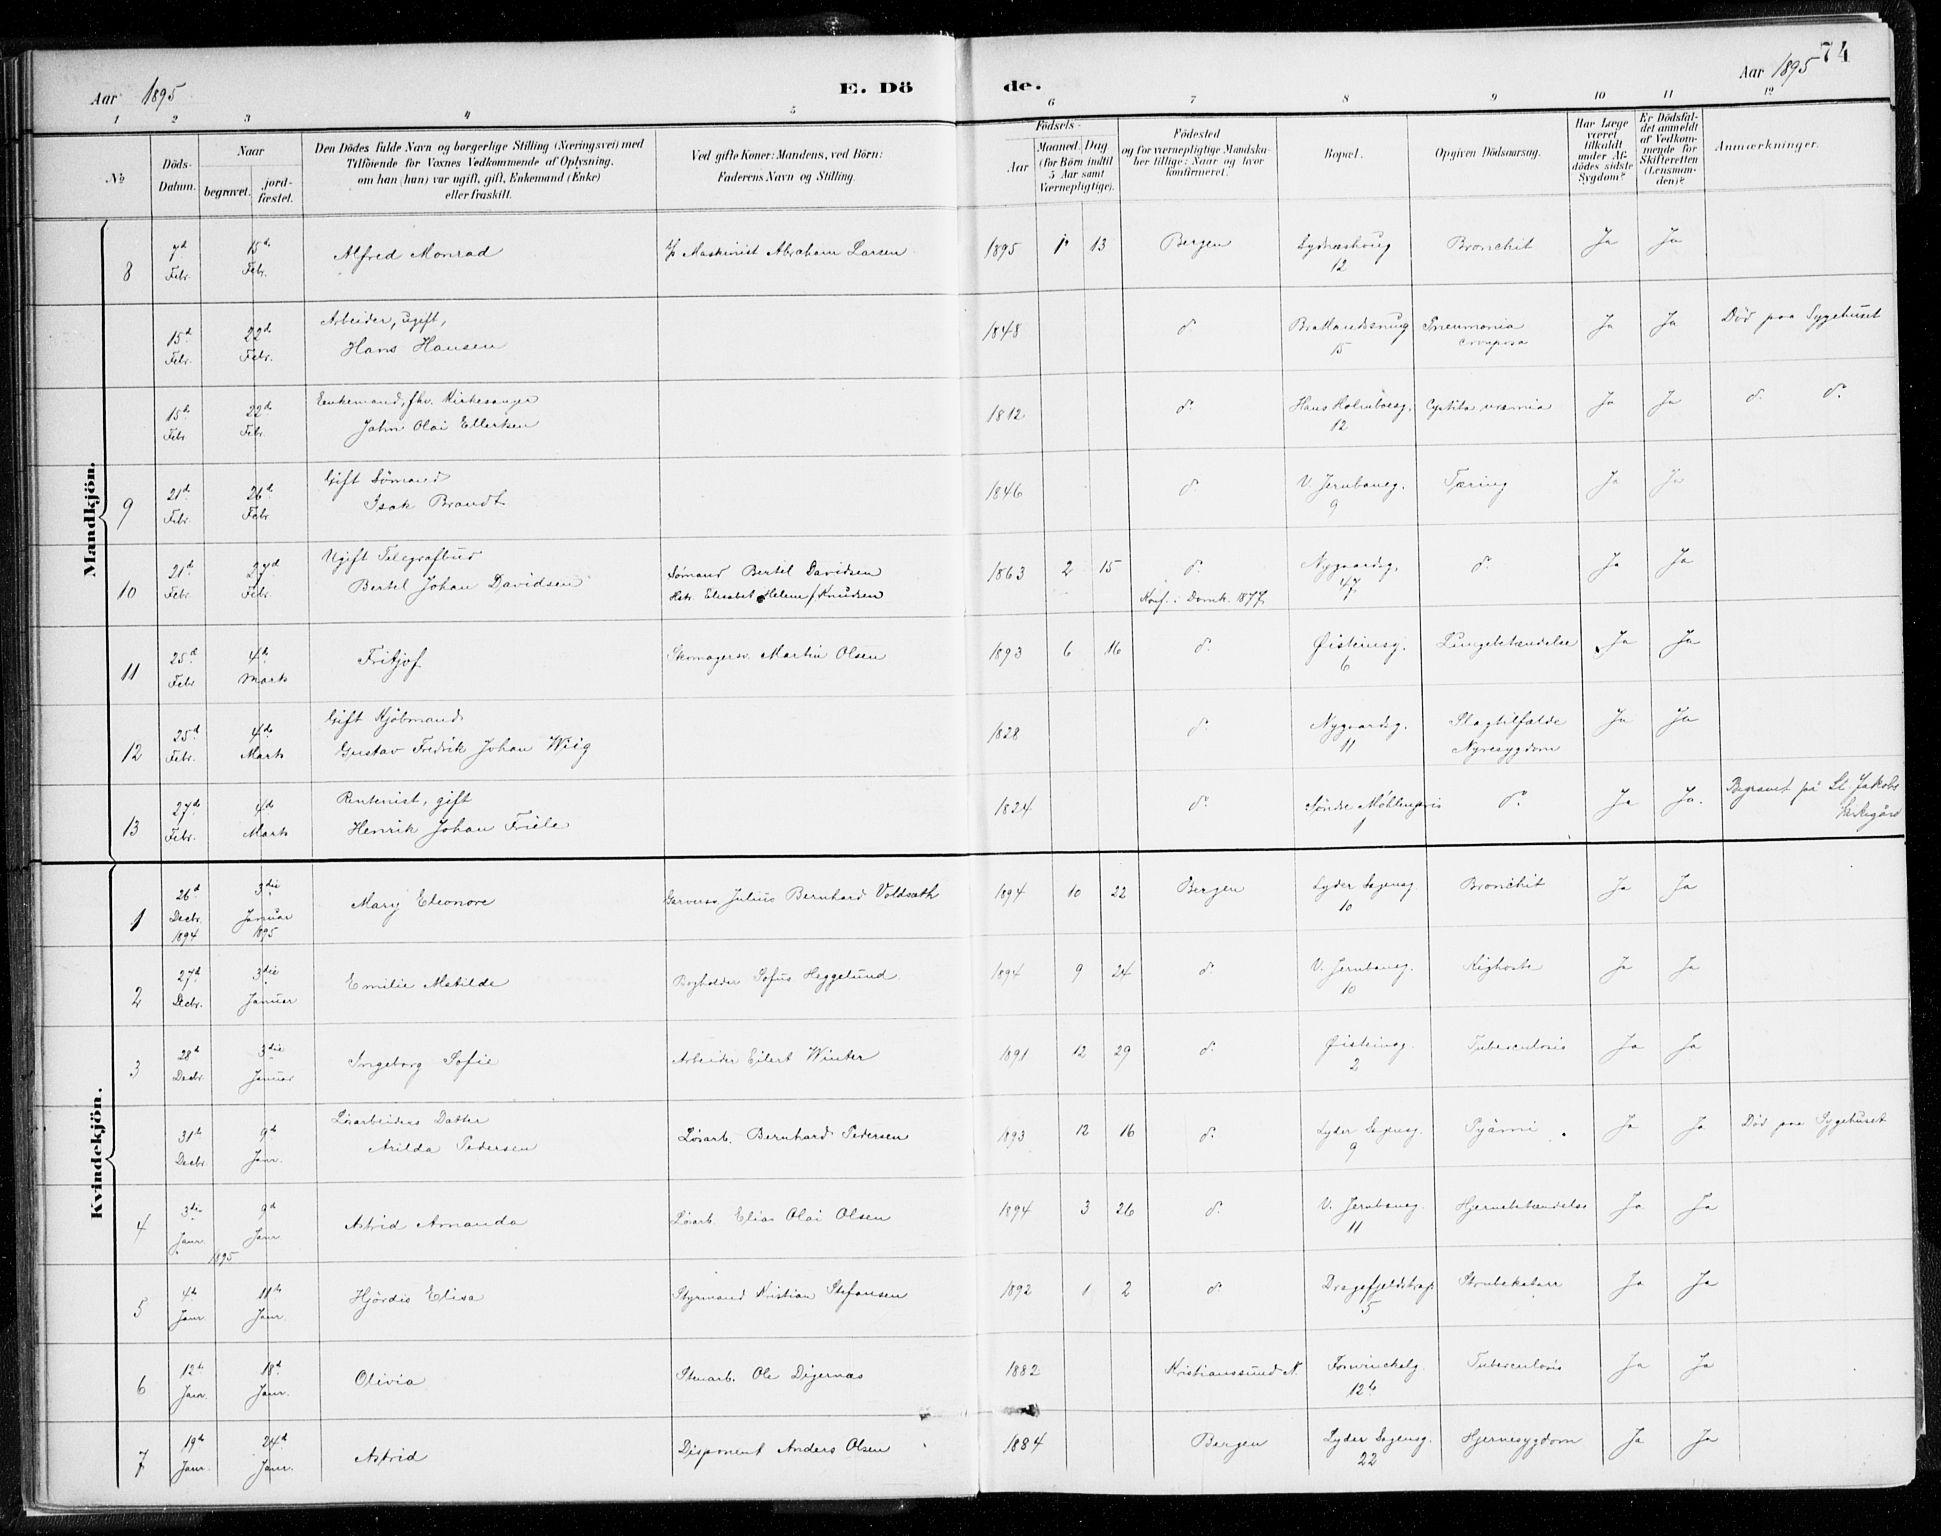 74
Aar 1895 E. Dö de. Aar 1895
1 2 3 4 5 6 7 8 9 10 11 12
No
Döds-Datum.
Naar
begravet.
jord-fæstet.
Den Dödes fulde Navn og borgerlige Stilling (Næringsvei) med
Tilföiende for Voxnes Vedkommende af Oplysning,
om han (hun) var ugift, gift, Enkemand (Enke)
eller fraskilt.
Ved gifte Koner: Mandens, ved Börn:
Faderens Navn og Stilling.
Födsels-
Aar
Maaned. Dag
(for Börn indtil
5 Aar samt
Værnepligtige).
Födested
og for værnepligtige Mandska-
ber tillige: Naar og hvor
konfirmeret.
Bopæl.
Opgiven Dödsaarsag.
Har Læge
været
tilkaldt
under Af-
dödes sidste
Sygdom?
Er Dödsfal-
det anmeldt
af Vedkom-
mende for
Skifteretten
(Lensman-
den)?
Anmærkninger.
Mandkjön.
8 7d Febr. 15de Febr. Alfred Monrad Maskinist Abraham Larsen 1895 1 13 Bergen Lydneshoug 12 Bronchit Ja Ja
15de Febr. 22d Febr. Arbeider, ugift, Hans Hansen 1848 do Bratlandssmug 15 Pneumonia crouposa Ja Ja Död paa Sygehuset
15de Febr. 22d Febr. Enkemand, fhv. Kirkesanger John Olai Ellertsen 1812 do Hans Holmboesg. 12 Cystitis uræmia Ja Ja do do
9 21d Febr. 26d Febr. Gift Sömand Isak Brandt 1846 do V. Jernbaneg. 9 Tæring Ja Ja
10 21d Febr. 27d Febr. Ugift Telegrafbud Bertel Johan Davidsen Sömand Bertil Davidsen Hstr. Elisabet Helene f. Knudsen 1863 2 15 do Konf. i Domk. 1877 Nygaardsg. 47 do Ja Ja
11 25d Febr. 4de Marts Fritjof Skomagersv. Martin Olsen 1893 6 16 do Øisteinsg. 6 Lungebetændelse Ja Ja
12 25d Febr. 4de Marts Gift Kjöbmand Gustav Fredrik Johan Wiig 1828 do Nygaardsg. 11 Slagtilfælde Nyresygdom Ja Ja
13 27de Febr. 4d Marts Rentenist, gift Henrik Johan Friele 1824 do Søndre Møhlenpris 1 do Ja Ja. Begravet på St. Jakobs Kirkegård
Kvindekjön.
1 26d Decbr. 1894 3die Januar 1895 Mary Eleonore Garversv. Julius Bernhard Voldsæth 1894 10 22 Bergen Lyder Sagensg. 10 Bronchit Ja Ja
2 27d Decbr. 3die Januar Emilie Matilde Bogholder Sofus Heggelund 1894 9 24 do V. Jernbaneg. 10 Kighoste Ja Ja
3 28d Decbr. 3die Januar Ingeborg Sofie Arbeider Eilert Winter 1891 12 29 do Øisteinsg. 2 Tuberculosis Ja Ja
31te Decbr. 9d Janr. Løsarbeiders Datter Arilda Pedersen Løsarb. Bernhard Pedersen 1893 12 16 do Lyder Sagensg. 9 Pyämi Ja Ja Död paa Sygehuset
4 3die Janr. 1895 9d Janr. Astrid Amanda Løsarb. Elias Olai Olsen 1894 3 26 do V. Jernbaneg. 11 Hjernebetændelse Ja Ja
5 4de Janr. 11te Janr. Hjördis Elisa Styrmand Kristian Stefansen 1892 1 2 do Dragefjeldstrap. 5 Strubekatarr Ja Ja
6 12te Janr. 18d Janr. Olivia Stenarb. Ole Digernæs 1882 Kristianssund N. Forwinckelg. 12b Tuberculosis Ja Ja
7 19de Janr. 24d Janr. Astrid Disponent Anders Olsen 1884 Bergen Lyder Sagensg. 22 Hjernesygdom Ja Ja